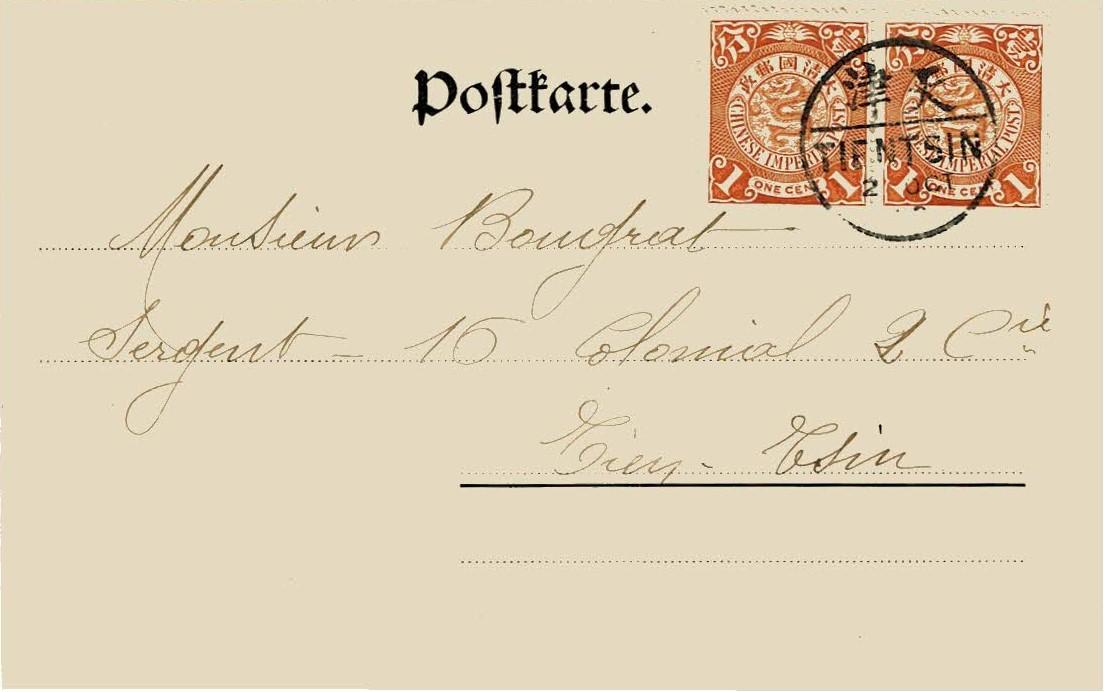 Postkarte.
壹分
大清國郵政
CHINESE IMPERIAL POST
1 ONE CENT 1
壹分
大清國郵政
CHINESE IMPERIAL POST
1 ONE CENT 1
天津
TIENTSIN
2 OCT
Monsieur Bougrat
Sergent – 16 Colonial 2 Cie
Tien-Tsin